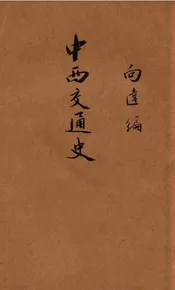 中西交通史
向達編